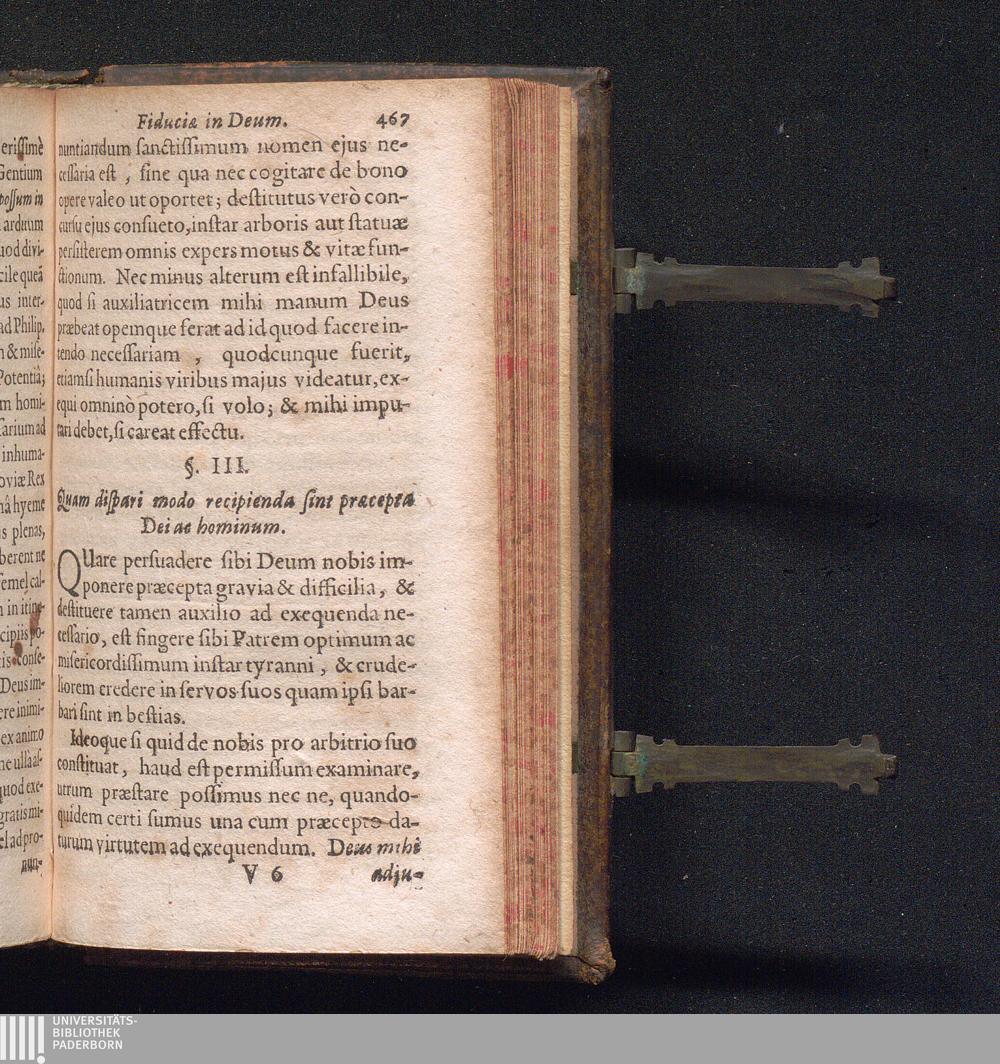 Fiduciæ in Deum. 467
nuntiandum ſanctiſſimum nomen ejus ne-
ceſſaria eſt , ſine qua nec cogitare de bono
opere valeo ut oportet; deſtitutus verò con-
curſu ejus conſueto, inſtar arboris aut ſtatuæ
perſiſterem omnis expers motus & vitæ fun-
ctionum. Nec minus alterum eſt infallibile,
quod ſi auxiliatricem mihi manum Deus
præbeat opemque ferat ad id quod facere in-
tendo neceſſariam , quodcunque fuerit,
etiamſi humanis viribus majus videatur, ex-
equi omninò potero, ſi volo; & mihi impu-
tari debet, ſi careat effectu.
§. III.
Quam diſpari modo recipienda ſint præcepta
Dei ac hominum.
QUare perſuadere ſibi Deum nobis im-
ponere præcepta gravia & difficilia, &
deſtituere tamen auxilio ad exequenda ne-
ceſſario, eſt fingere ſibi Patrem optimum ac
miſericordiſſimum inſtar tyranni , & crude-
liorem credere in ſervos ſuos quam ipſi bar-
bari ſint in beſtias.
Ideoque ſi quid de nobis pro arbitrio ſuo
conſtituat, haud eſt permiſſum examinare,
utrum præſtare poſſimus nec ne, quando-
quidem certi ſumus una cum præcepto da-
turum virtutem ad exequendum. Deus mihi
V 6 adju-
eriſſimè
Gentium
poſſum in
arduum
uod divi-
cile queã
us inter-
ad Philip.
n & miſe-
Potentiâ;
m homi-
ſarium ad
inhuma-
oviæ Rex
mâ hyeme
s plenas,
berent ne
ſemel cal-
n in itine-
cipiis po-
tis conſe-
Deus im-
ere inimi-
ex animo
ne ulla aſ-
quod exe-
gratis mi-
el ad pro-
nun-
UNIVERSITÄTS-
BIBLIOTHEK
PADERBORN